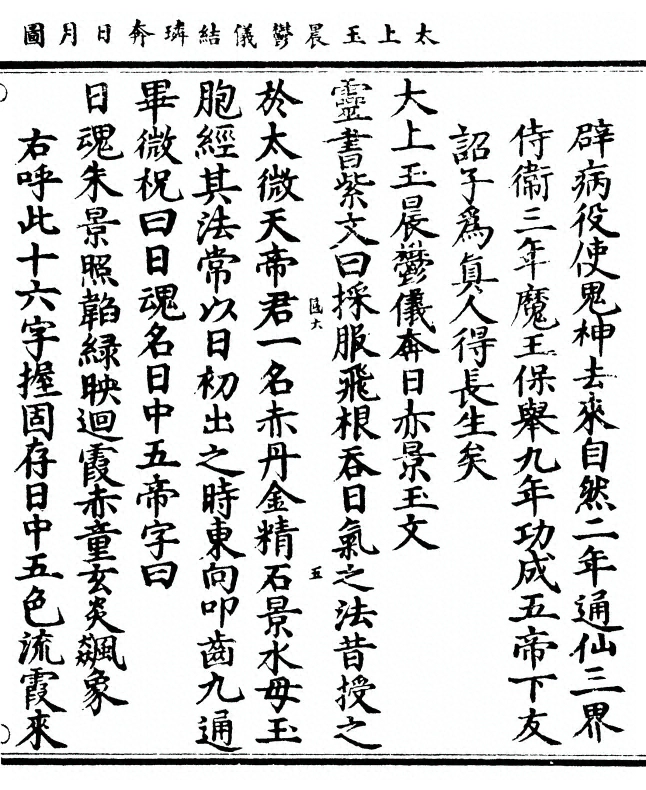 太上玉晨鬱儀結璘奔日月圖
辟病役使鬼神去來自然二年通仙三界
侍衛三年魔王保舉九年功成五帝下友
詔子爲眞人得長生矣
大上玉晨鬱儀奔日赤景玉文
靈書紫文曰採服飛根吞日氣之法昔授之
於太微天帝君一名赤丹金精石景水母玉
胞經其法常以日初出之時東向叩齒九通
畢微祝曰日魂名日中五帝字曰
日魂朱景照韜緑映迴霞赤童玄炎飈象
右呼此十六字握固存日中五色流霞來
五